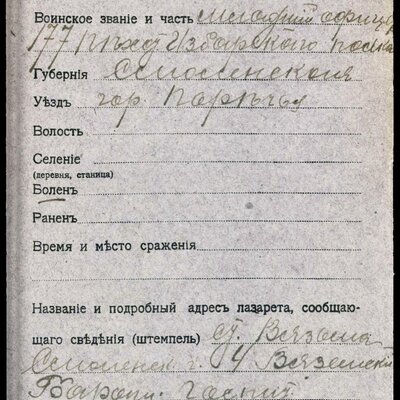 Воинское званіе и часть младший офицер
177 пѣхот Изборского полка
Губернія Смоленская
Уѣздъ гор. Порѣчье
Волость
Селеніе
(деревня, станица)
Боленъ
Раненъ
Время и мѣсто сраженія
Названіе и подробный адресъ лазарета, сообщаю-
щаго свѣдѣнія (штемпель) ст. Вязьма
Смоленск г. 4 Вяземский
госпит.